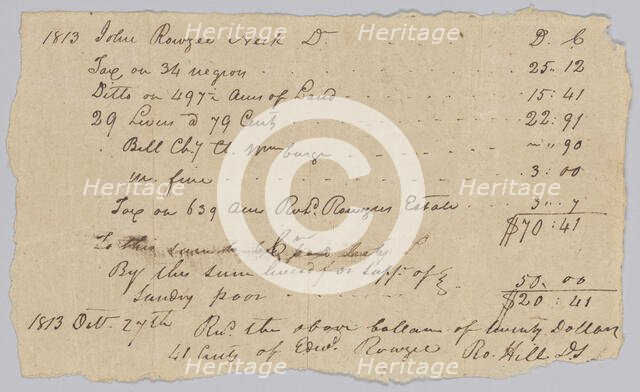 1813 John Rowzee Neck Dr. D. C
Tax on 34 negros 25.. 12
Ditto on 497 1/2 Acres of Land 15: 41
29 Levies @ 79 Cents 22: 91
Bill Chy Ct. Wmburge ~ .. 90
m. fine 3: 00
Tax on 639 acres Robt. Rowzees Estate 3.. 7
$70: 41
To this sum
By this sum levied for Supp. of 50.. 00
Sundry poor $20: 41
1813 Octr. 27th Recd. the above ballance of twenty Dollars
41 Cents of Edwd. Rowzee Ro. Hill DS
Heritage
Images